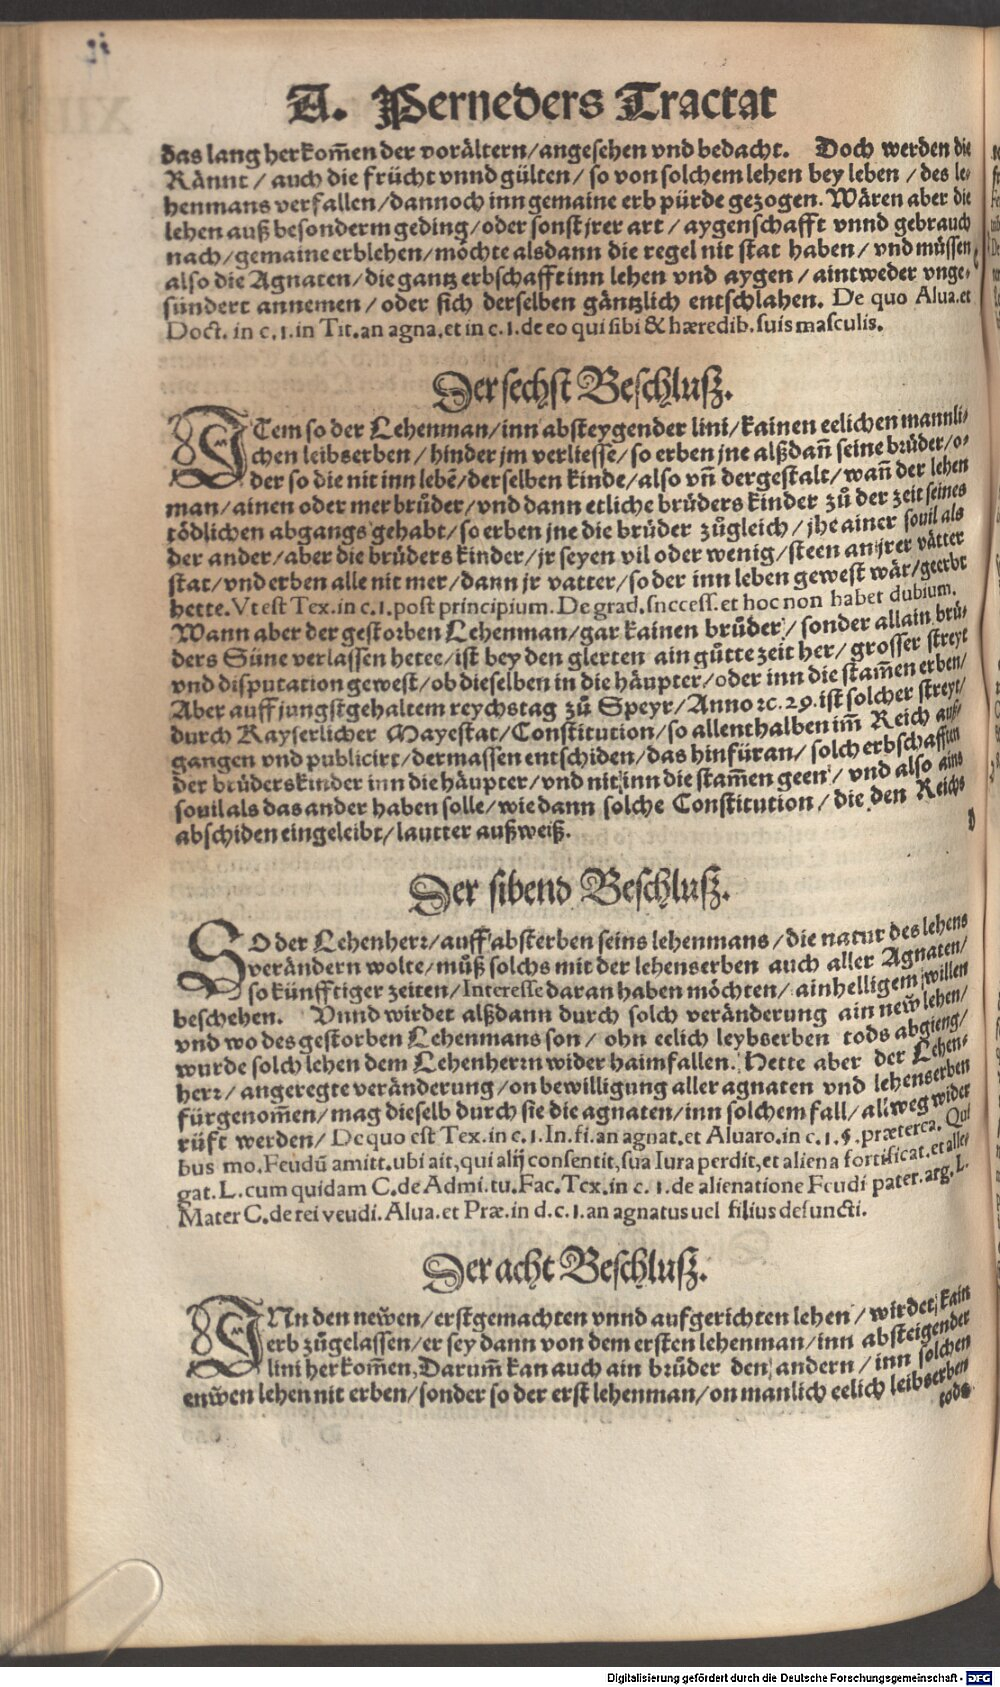 A. Perneders Tractat
das lang herkom̃en der vorältern/angesehen vnd bedacht. Doch werden die
Rännt / auch die frücht vnnd gülten / so von solchem lehen bey leben / des le-
henmans verfallen/dannoch inn gemaine erb pürde gezogen. Wären aber die
lehen auß besonderm geding/oder sonst jrer art / aygenschafft vnnd gebrauch
nach/gemaine erblehen/möchte alsdann die regel nit stat haben / vnd müssen
also die Agnaten/die gantz erbschafft inn lehen vnd aygen / aintweder vnge-
sündert annemen / oder sich derselben gäntzlich entschlahen. De quo Alua.et
Doct. in c.1.in Tit.an agna.et in c.1.de eo qui sibi & hæredib.suis masculis.
Der sechst Beschlusz.
ITem so der Lehenman/inn absteygender lini/kainen eelichen mannli-
chen leibserben / hinder jm verliesse/so erben jne alßdañ seine brůder/o-
der so die nit inn lebẽ/derselben kinde/also vñ dergestalt/wañ der lehen
man/ainen oder mer brůder/vnd dann etliche brůders kinder zů der zeit seines
tödlichen abgangs gehabt/so erben jne die brůder zůgleich / jhe ainer souil als
der ander/aber die brůders kinder/jr seyen vil oder wenig/steen an jrer vätter
stat/vnd erben alle nit mer/dann jr vatter/so der inn leben gewest wär/geerbt
hette. Vt est Tex.in c.1.post principium. De grad.snccess.et hoc non habet dubium.
Wann aber der gestorben Lehenman/gar kainen brůder / sonder allain brů-
ders Süne verlassen hetee/ist bey den glerten ain gůtte zeit her/ grosser streyt
vnd disputation gewest/ob dieselben in die häupter/oder inn die stam̃en erben/
Aber auff jungstgehaltem reychstag zů Speyr/Anno ⁊c.29.ist solcher streyt/
durch Kayserlicher Mayestat/Constitution/so allenthalben im̃ Reich auß-
gangen vnd publicirt/dermassen entschiden/das hinfüran/ solch erbschafften
der brůderskinder inn die häupter/vnd nit inn die stam̃en geen / vnd also ains
souil als das ander haben solle/wie dann solche Constitution / die den Reichs
abschiden eingeleibt/lautter außweiß.
Der sibend Beschlusz.
SO der Lehenherr/auff absterben seins lehenmans /die natur des lehens
verändern wolte/můß solchs mit der lehenserben auch aller Agnaten/
so künfftiger zeiten/Interesse daran haben möchten/ainhelligem willen
beschehen. Vnnd wirdet alßdann durch solch veränderung ain new̃ lehen/
vnd wo des gestorben Lehenmans son/ ohn eelich leybserben tods abgieng/
wurde solch lehen dem Lehenherrn wider haimfallen. Hette aber der Lehen-
herr/angeregte veränderung/on bewilligung aller agnaten vnd lehenserben
fürgenom̃en/mag dieselb durch sie die agnaten/inn solchem fall/allweg wider
rüft werden/ De quo est Tex.in c.1.In.fi.an agnat.et Aluaro.in c.1.§.præterea. Qui
bus mo.Feudũ amitt.ubi ait,qui alij consentit,sua Iura perdit,et aliena fortificat.et alle-
gat. L.cum quidam C.de Admi.tu.Fac.Tex.in c.1.de alienatione Feudi pater.arg.L.
Mater C.de rei veudi.Alua.et Præ.in d.c.1.an agnatus uel filius defuncti.
Der acht Beschlusz.
INn den new̃en/erstgemachten vnnd aufgerichten lehen / wirdet kain
erb zůgelassen/er sey dann von dem ersten lehenman/inn absteigender
lini herkom̃en,Darum̃ kan auch ain brůder den andern / inn solchen
enw̃en lehen nit erben/sonder so der erst lehenman/on manlich eelich leibserben
tods
Digitalisierung gefördert durch die Deutsche Forschungsgemeinschaft - DFG